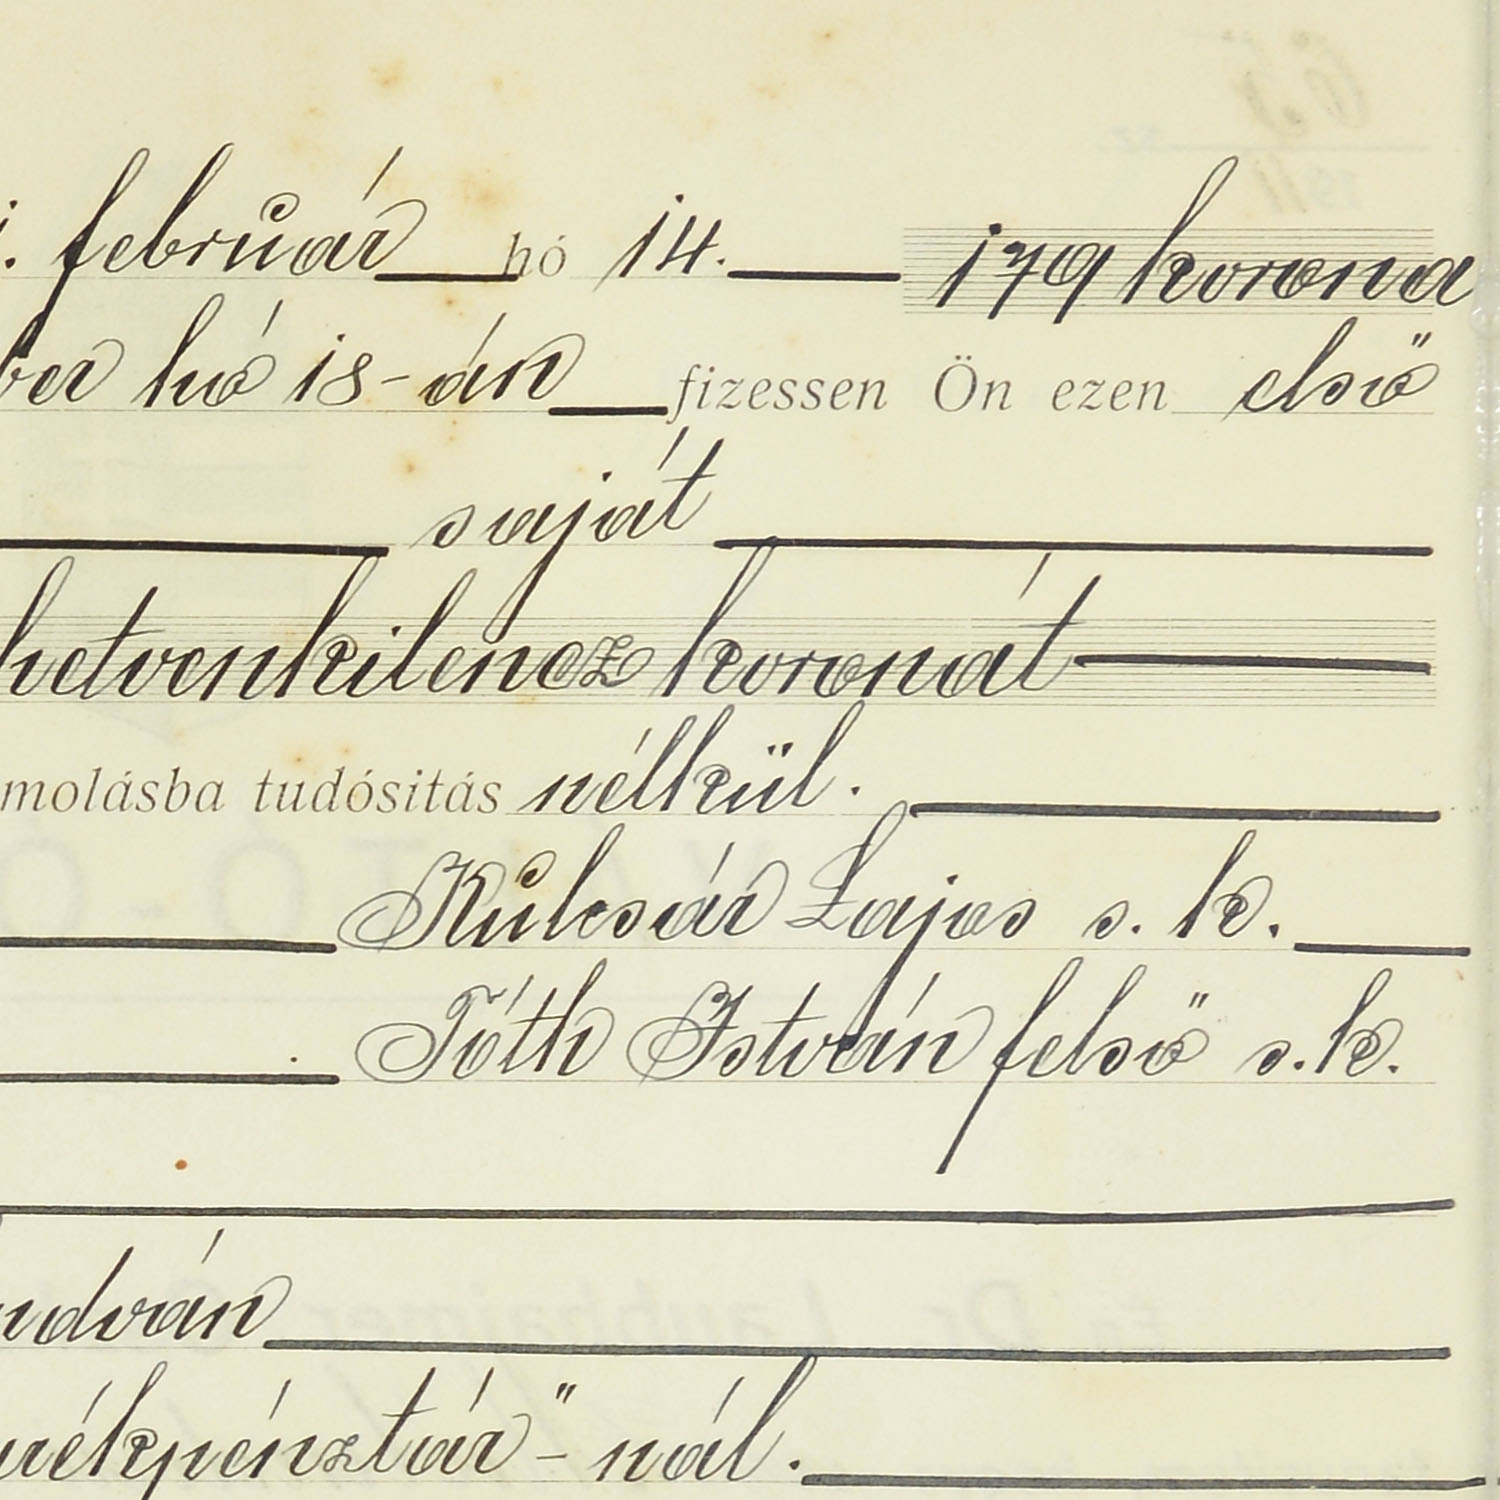 február hó 14. 179 korona
hó 18-án fizessen Ön ezen első
saját
hetvenkilencz koronát
molásba tudósitás nélkül.
Kulcsár Lajos s. k.
Tóth István felső s. k.
udván
rékpénztár"-nál.